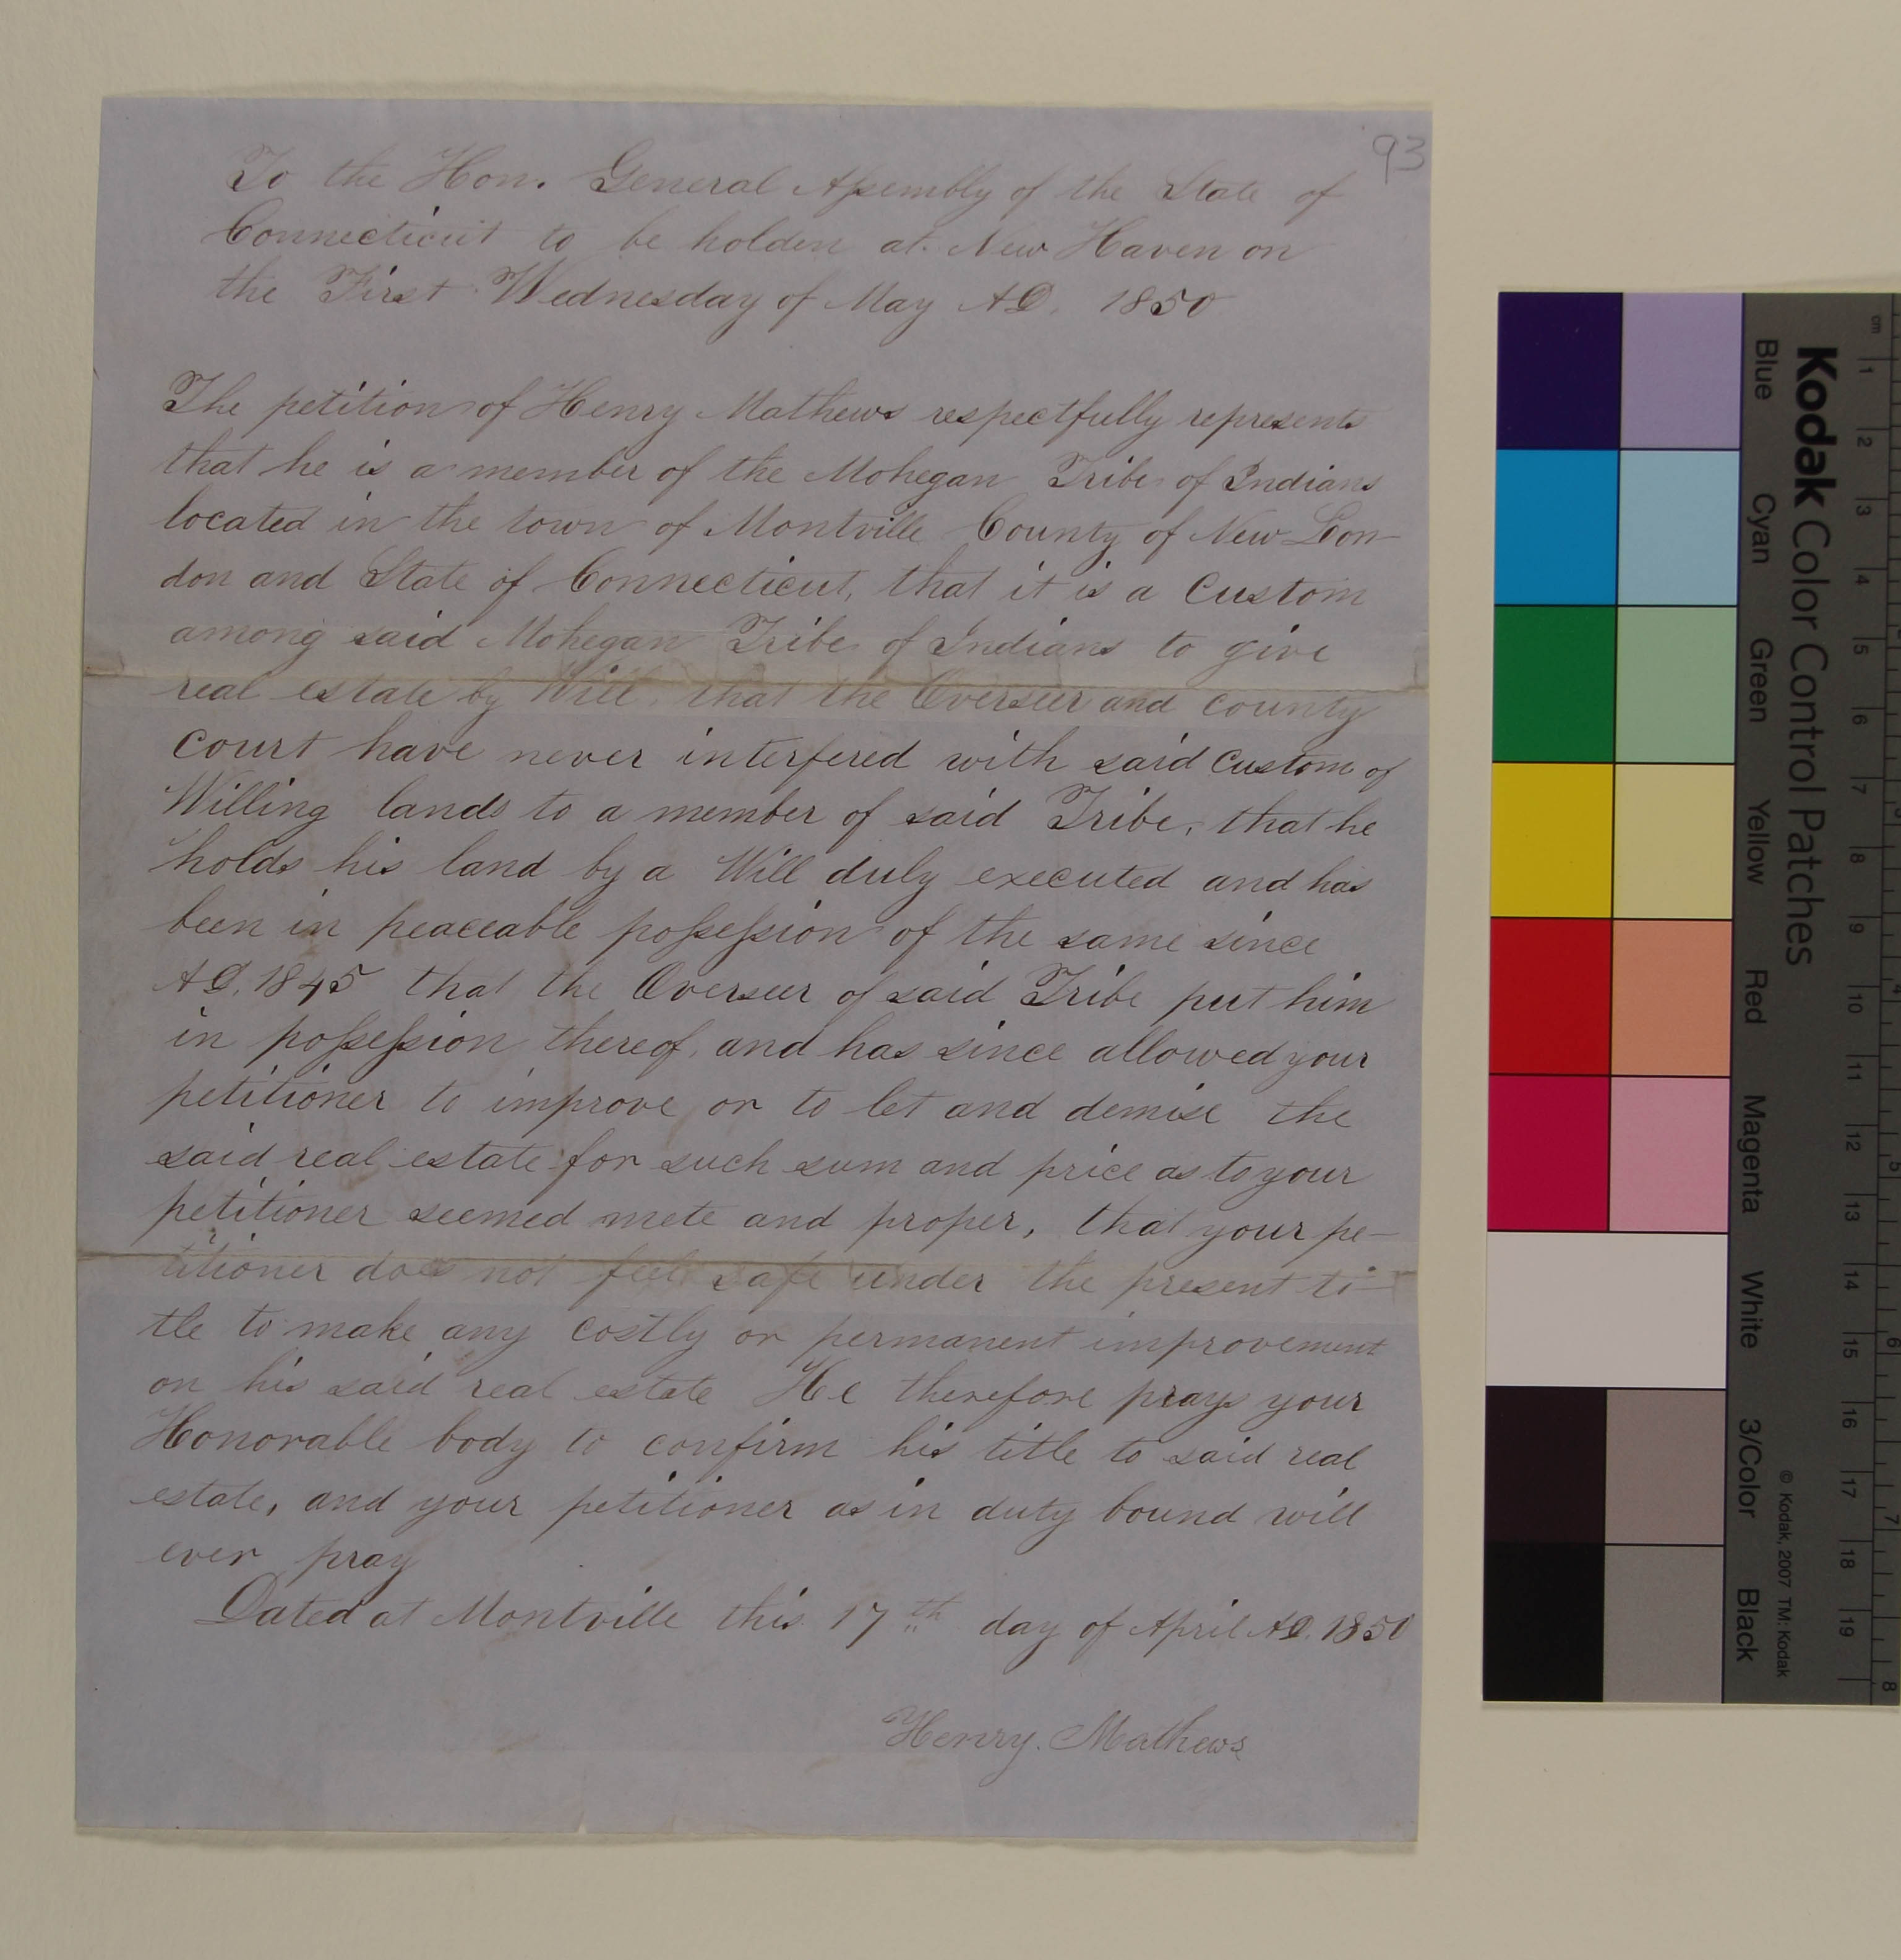 93
To the Hon. General Assembly of the State of
Connecticut to be holden at New Haven on
the First Wednesday of May AD. 1850
The petition of Henry Mathews respectfully represents
that he is a member of the Mohegan Tribe of Indians
located in the town of Montville County of New Lon-
don and State of Connecticut, that it is a Custom
among said Mohegan Tribe of Indians to give
real estate by Will, that the Overseer and county
court have never interfered with said Custom of
Willing lands to a member of said Tribe, that he
holds his land by a Will duly executed and has
been in peaceable possession of the same since
AD. 1845 that the Overseer of said Tribe put him
in possession thereof, and has since allowed your
petitioner to improve or to let and demise the
said real estate for such sum and price as to your
petitioner seemed mete and proper, that your pe-
titioner does not feel safe under the present ti-
tle to make any costly or permanent improvement
on his said real estate He therefore prays your
Honorable body to confirm his title to said real
estate, and your petitioner as in duty bound will
ever pray
Dated at Montville this 17th day of April AD. 1850
Henry. Mathews
Kodak Color Control Patches
© Kodak, 2007 TM: Kodak
Blue Cyan Green Yellow Red Magenta White 3/Color Black
cm 1 2 3 4 5 6 7 8 9 10 11 12 13 14 15 16 17 18 19
4 5 6 7 8